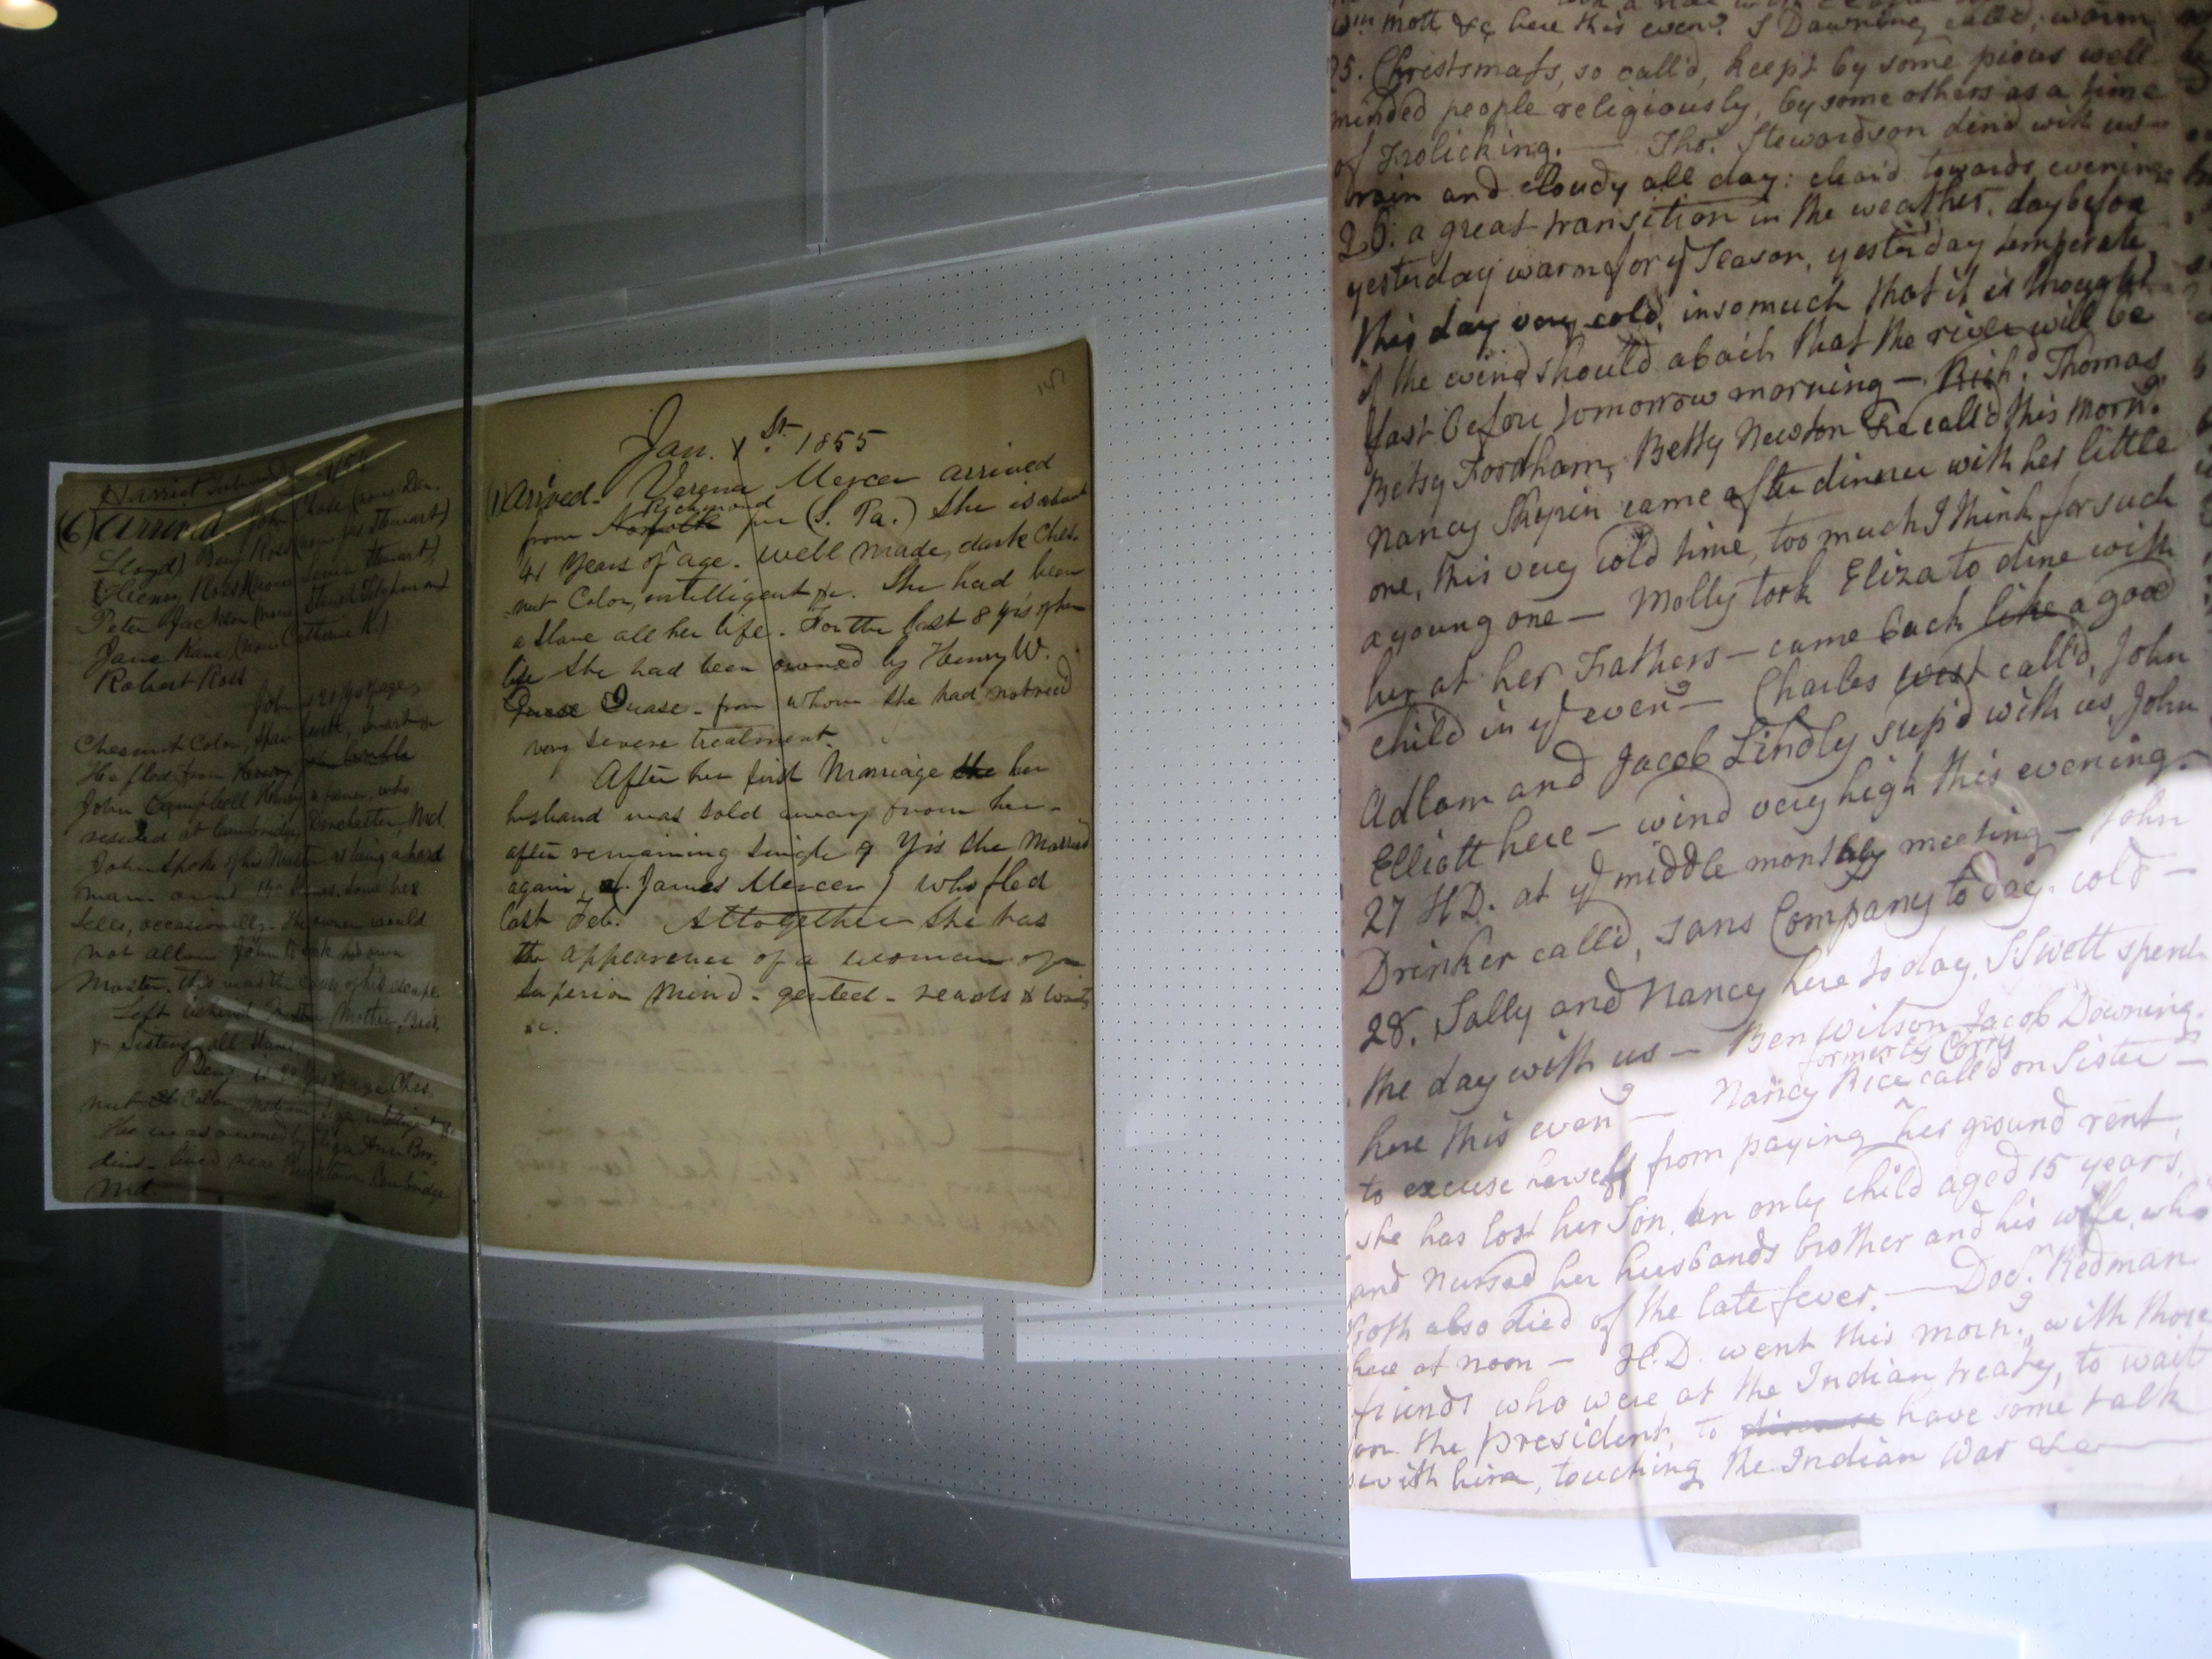 Harriet
(6) Arrived. John Chase (now Dan.
Lloyd) Benj Ross (now Jas Stewart)
Henry Ross (now Levin Stewart)
Peter Jackson (now
Jane Kane (now Catherine K.)
Robert Ross
John is 20 yrs of age,
Chesnut Color, Spare built, smart &c
He fled from
John Campbell Henry a farmer, who
resided at Cambridge, Dorchester, Md.
John spoke of his Master as being a hard
man.
sells, occasionally. The owner would
not allow John to seek his own
Master. this was the cause of his escape.
Left behind Mother, Bros,
& Sisters all Slaves.
Benj is yrs of age Ches
nut Color, Medium size intelligent &c
He was owned by Eliza Ann Bro-
dins - lived near Bucktown Cambridge
Md.
147
Jan. 1 St. 1855
(1) Arived. Verena Mercer arrived
Richmond
from Norfolk per (S. Pa.) She is about
41 Years of age. well made, dark Ches-
nut Color, intelligent &c. She had been
a Slave all her life. For the last 8 yrs of her
life She had been owned by Henry W.
Quase - from whom she had received
very severe treatment.
After her first Marriage the her
husband was sold away from her -
after remaining single 9 Yrs she Married
again, (James Mercer) who fled
last Feb. Altogether She has
the appearance of a woman of a
Superior Mind - genteel - reads & writes
&c.
Wm Mott &c here this eveng. J Downing call'd, warm
25. Christsmass, so call'd, keept by some pious well
minded people religiously, by some others as a time
of Frolicking. — Thos. Stewardson dind with us —
rain and cloudy all day: clear'd towards evening
26. a great transition in the weather. day before
yesterday warm for ye Season, yesterday temperate,
this day very cold, insomuch that it is thought
if the wind should abaith that the river will be
fast before tomorrow morning — Richd. Thomas
Betsy Fordham, Betty Newton &c call'd this morng.
Nancy Skyrin came after dinner with her little
one, this very cold time, too much I think for such
a young one — Molly took Eliza to dine with
her at her Fathers — came back like a good
child in ye eveng — Charles West call'd, John
Adlam and Jacob Lindly sup'd with us, John
Elliott here — wind very high this evening.
27 H.D. at ye middle monthly meeting — John
Drinker call'd, sans Company to day. cold —
28. Sally and Nancy here to day. S Swett spent
the day with us — Ben Wilson Jacob Downing
here this eveng — Nancy Rice formerly Corry call'd on Sister —
to excuse herself from paying her ground rent,
she has lost her Son, an only child aged 15 years,
and Nursed her husbands brother and his wife, who
both also died of the late fever. — Docr. Redman
here at noon — H.D. went this morng. with those
friends who were at the Indian treaty, to wait
on the president, to discourse have some talk
with him, touching the Indian War &c —